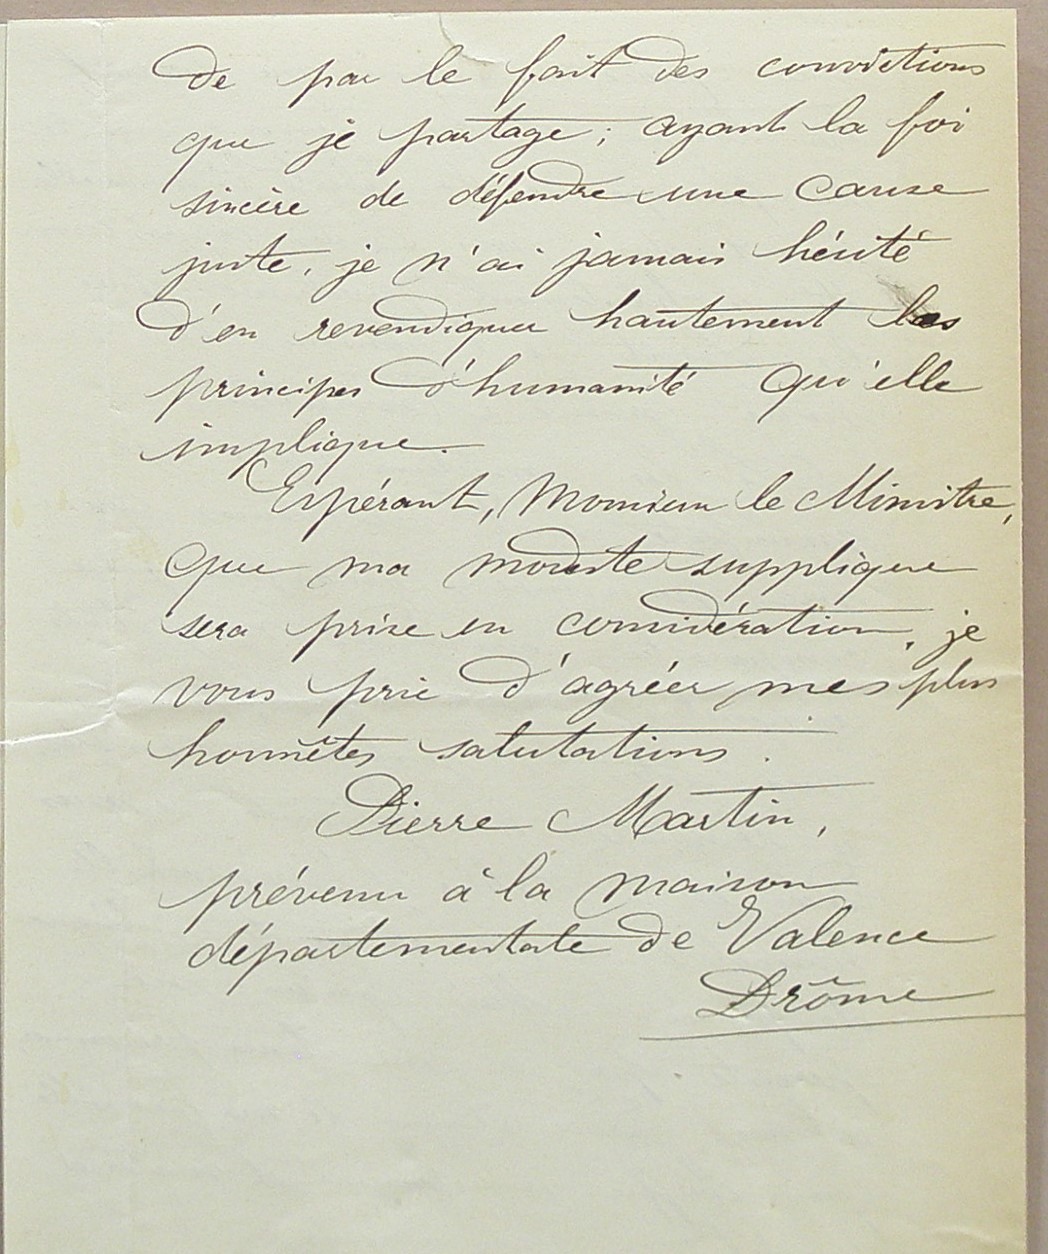 de par le fait des convictions
que je partage ; ayant la foi
sincère de défendre une cause
juste, je n'ai jamais hésité
d'en revendiquer hautement les
principes d'humanité qu'elle
implique.
Espérant, Monsieur le Ministre,
que ma modeste supplique
sera prise en considération, je
vous prie d'agréer mes plus
honnêtes salutations.
Pierre Martin,
prévenu à la maison
départementale de Valence
Drôme